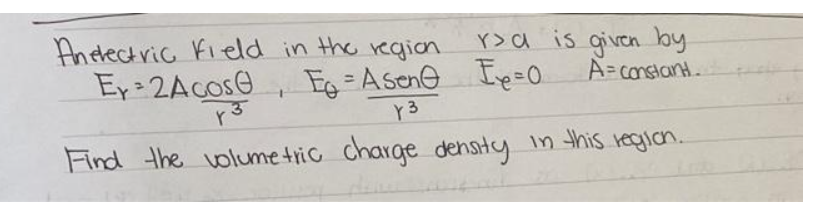 An electric field in the region r>a is given by
Er = 2Acosθ/r³ , Eθ = Asenθ/r³ Eφ=0 A=constant.
Find the volumetric charge density in this region.